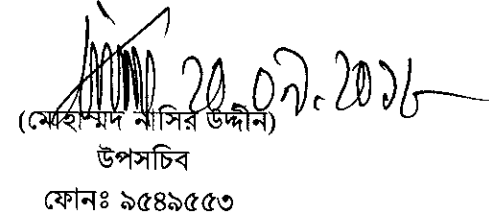 ২০.০৯.২০১৮
(মোহাম্মদ নাসির উদ্দীন)
উপসচিব
ফোনঃ ৯৫৪৯৫৫৩